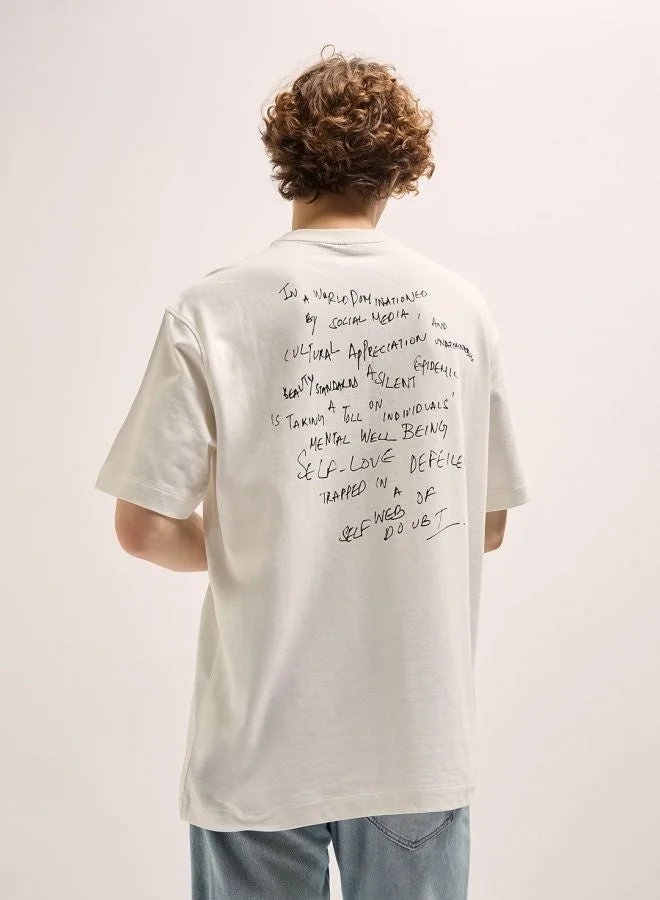 IN A WORLD DOMINATIONED
BY SOCIAL MEDIA, AND
CULTURAL APPRECIATION UNATTAINABLE
BEAUTY STANDARDS A SILENT EPIDEMIC
IS TAKING A TOLL ON INDIVIDUALS'
MENTAL WELL BEING
SELF-LOVE DEFEILE
TRAPPED IN A
WEB OF
SELF DOUBT.